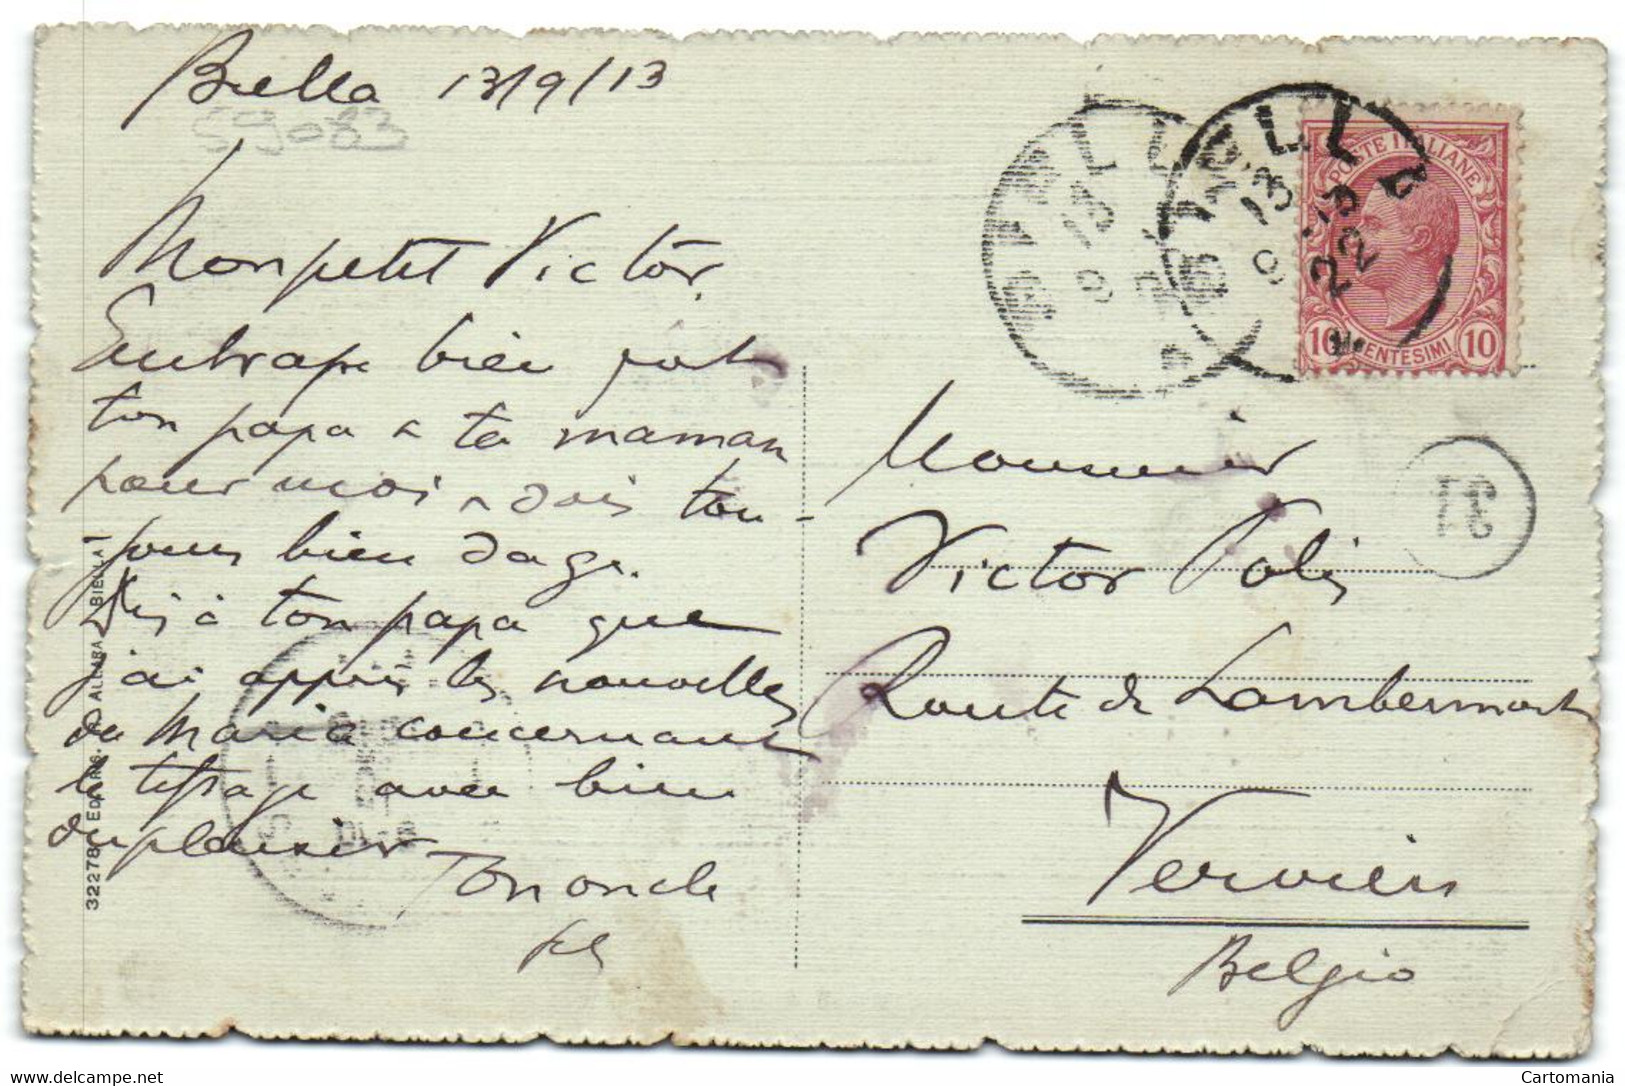 Biella 13/9/13
59083
Mon petit Victor.
Embrasse bien fort
ton papa & ta maman
pour moi & sois tou-
jours bien sage.
Dis à ton papa que
j'ai appris les nouvelles
de Maria concernant
le tissage avec bien
du plaisir
Ton oncle
32278 ALLARA BIELLA
BIELLA
13 9
BIELLA
13 9 13
22
POSTE ITALIANE
10 CENTESIMI 10
Monsieur
Victor Polis
Route de Lambermont
Verviers
Belgio
www.delcampe.net
Cartomania